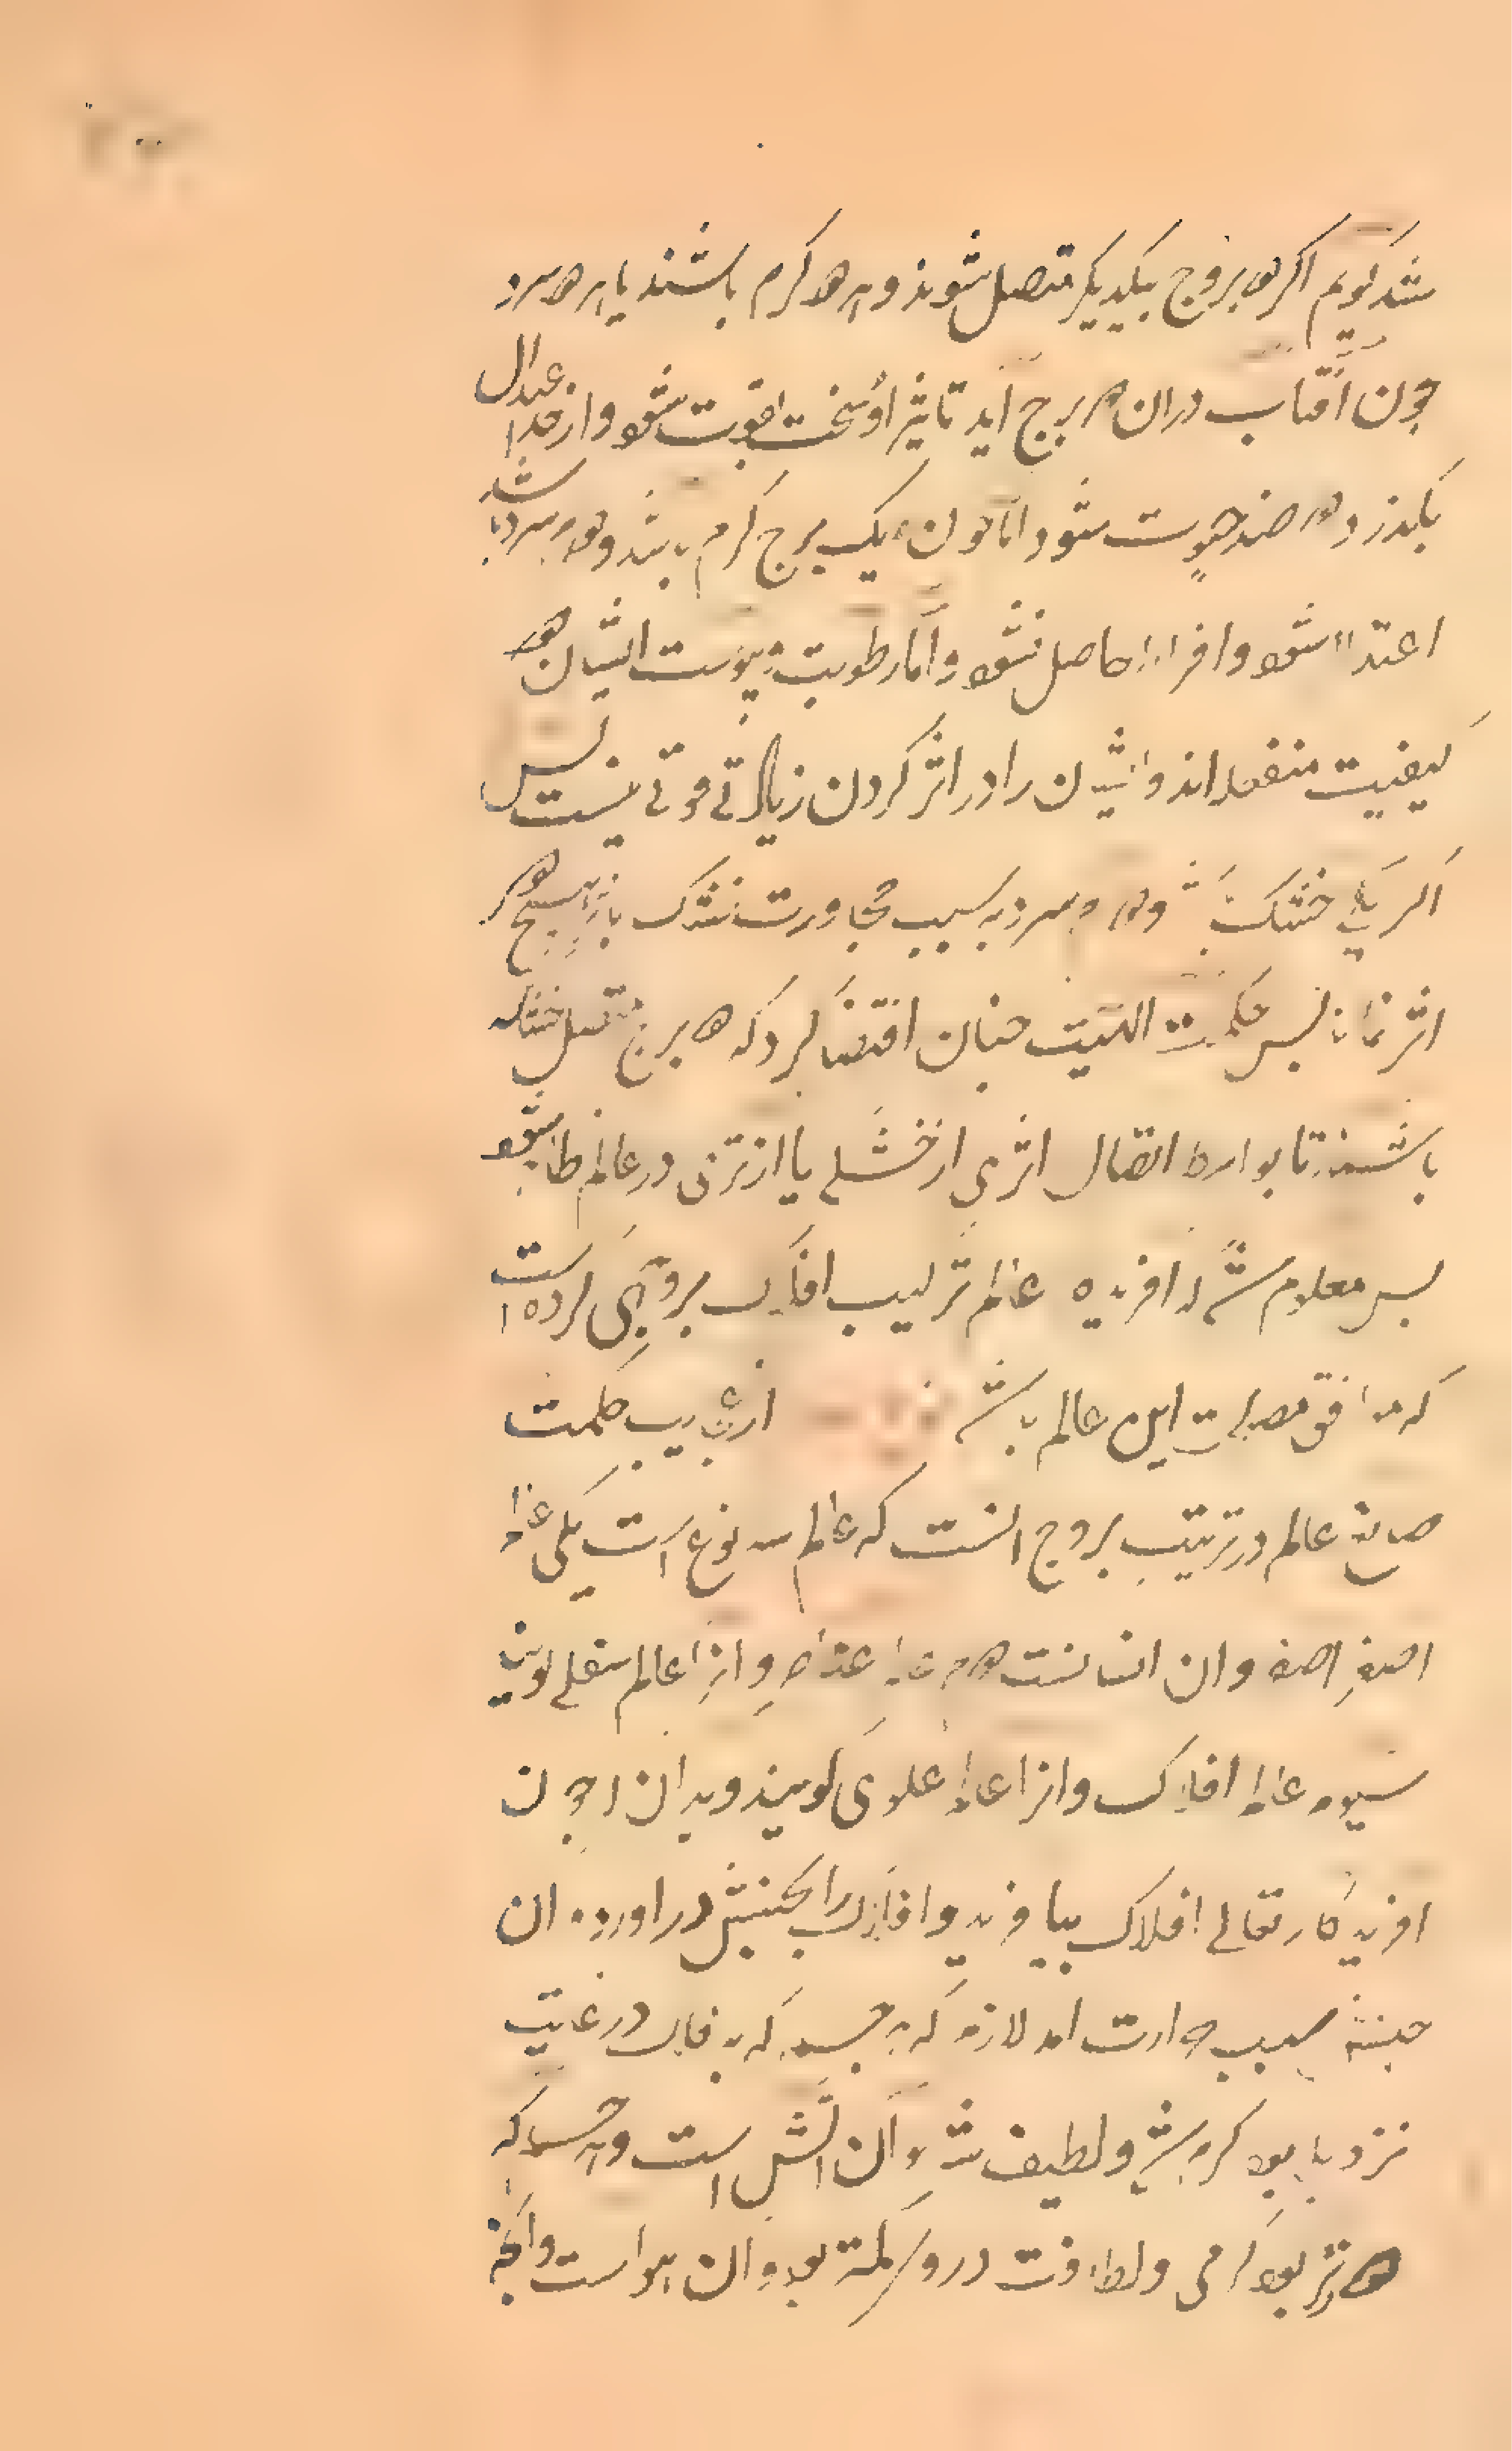 شد کویم اکر دو بروج بیکدیکر متصل شوند و هر دو کرم باشند یا هر دو سرد
چون آفتاب دران دو برج آید تاثیر او سخت بقوت شود و از حد اعتدال
بکذرد و ضد حیوت شود اما چون یک برج کرم باشد و دوم سرد باشد
اعتدال شود و افراط حاصل نشود و اما رطوبت و یبوست ایشان هر دو
کیفیت منفعله اند و ایشان را در اثر کردن زیادتی قوتی نیست پس
اکر یکی خشک شود و دوم سرد به سبب مجاورت خشک با تر هیچ
اثر نماند پس حکمت الهیت چنان اقتضا کرد که دو برج متصل خشک
باشند تا بواسطه اتصال اثری از خشکی یا از تری در عالم ظاهر شود
پس معلوم شد که افریده عالم ترکیب افلاک بروجهی کرده است
که موافق مصلحت این عالم باشد از عجایب حکمت
صانع عالم در ترتیب بروج انست که عالم سه نوع است یکی عالم
اصغر اصغر و ان انسانست دوم عالم عناصر و انرا عالم سفلی کویند
سیوم عالم افلاک و انرا عالم علوی کویند و بدان چون
افریدکار تعالی افلاک بیافرید و افلاک را بجنبش دراورد و ان
جنبش سبب حرارت امد لازم که هر جسم که بفلک در غایت
نزدیک بود کرم شد و لطیف شد و آن آتش است و هر جسم که
دورتر بود کرمی و لطافت درو کمتر بود و ان هوا است و آنچه